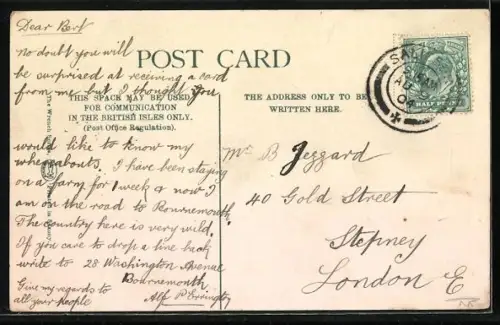 Dear Bert
no doubt you will
be surprised at reciving a card
from me but I thought you
would like to know my
whereabouts. I have been staying
on a farm for 1 week & now I
am on the road to Bournemouth.
The country here is very wild.
If you care to drop a line back
write to 28 Washington Avenue
Bournemouth
Give my regards to
all your people
Alf P Errington
POST CARD
THIS SPACE MAY BE USED
FOR COMMUNICATION
IN THE BRITISH ISLES ONLY.
(Post Office Regulation).
THE ADDRESS ONLY TO BE
WRITTEN HERE.
Mr B Jeggard
40 Gold Street
Stepney
London E
HALF PENNY
The Wrench